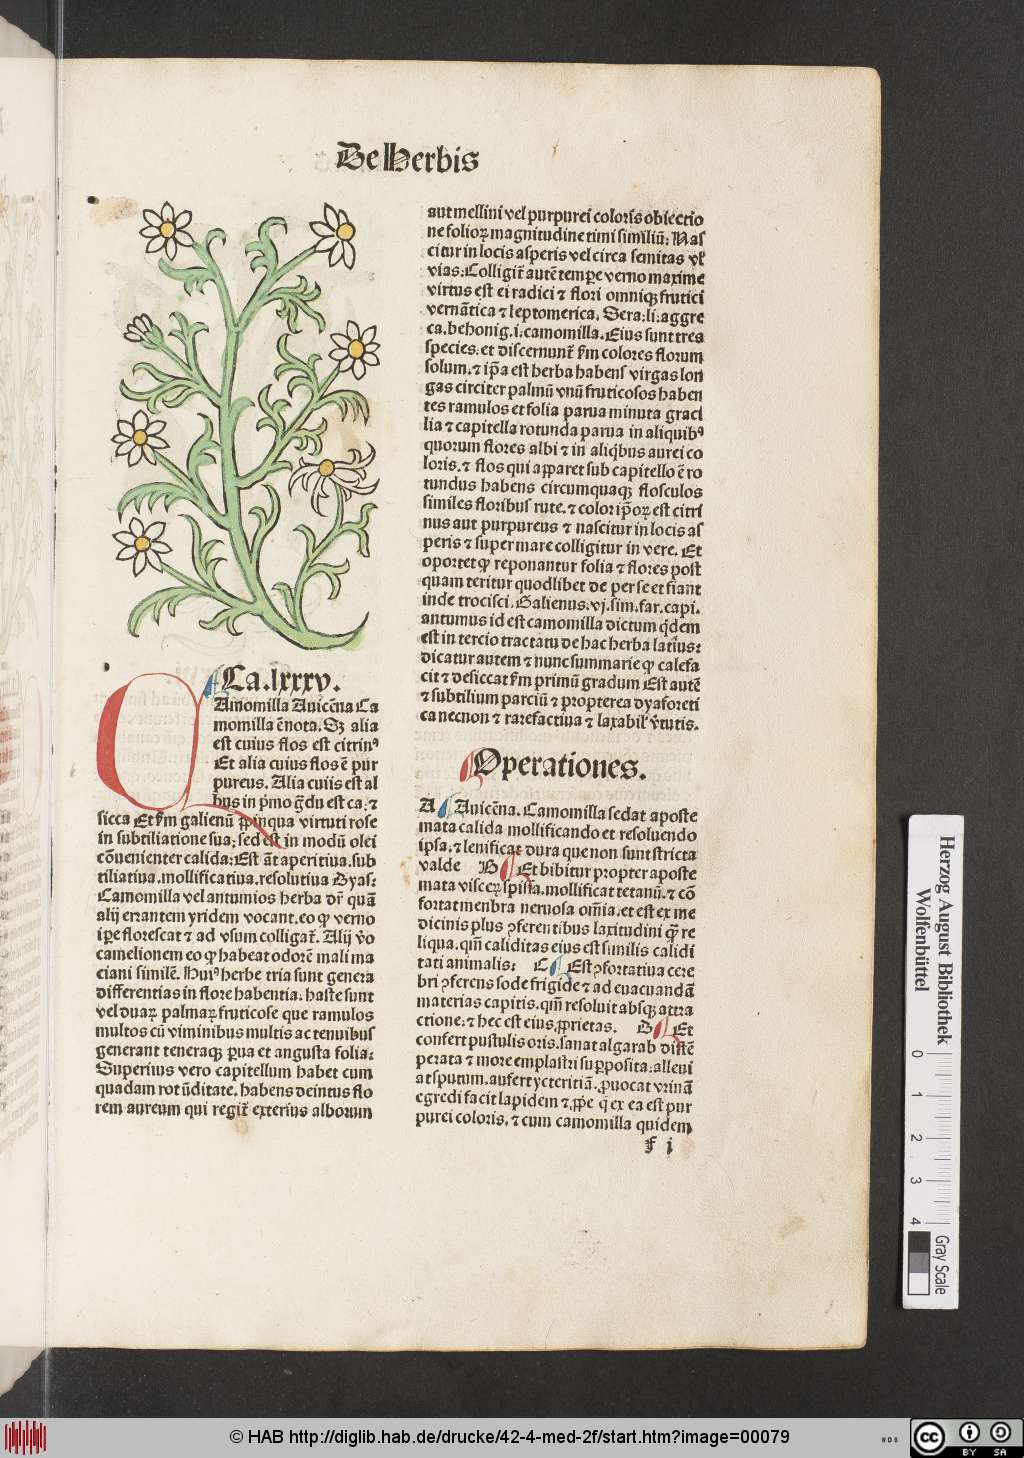 De Herbis
Ca. lxxxv.
Amomilla Auicēna Ca
momilla ē nota. Sꝫ alia
est cuius flos est citrinꝰ
Et alia cuius flos ē pur
pureus. Alia cuiꝰ est al
bus in p̄mo g̃du est ca. ⁊
sicca Et ẜm galienū ꝓpinqua virtuti rose
in subtiliatione sua; sed est in modū olei
cōuenienter calida: Est āt aperitiua. sub
tiliatiua. mollificatiua. resolutiua Dyas:
Camomilla vel antumios herba dr̄ quā
alij errantem yridem vocant. eo ꝙ verno
tp̄e florescat ⁊ ad vsum colligat᷑. Alij v̊o
camelionem eo ꝙ habeat odorē mali ma
ciani similē. Huiꝰ herbe tria sunt genera
differentias in flore habentia: haste sunt
vel duaꝝ palmaꝝ fruticose que ramulos
multos cū viminibus multis ac tenuibus
generant teneraqꝫ ꝑua et angusta folia:
Superius vero capitellum habet cum
quadam rotūditate. habens deintus flo
rem aureum qui regit᷑ exterius alborum
aut mellini vel purpurei coloris obiectio
ne folioꝝ magnitudine timi similiū: Nas
citur in locis asperis vel circa semitas vl̓
vias: Colligit᷑ autē tempe verno maxime
virtus est ei radici ⁊ flori omniqꝫ frutici
vernātica ⁊ leptomerica. Sera: li: aggre
ca. behonig. i. camomilla. Eius sunt tres
species. et discernunt᷑ ẜm colores florum
solum. ⁊ ip̄a est herba habens virgas lon
gas circiter palmū vnū fruticosos haben
tes ramulos et folia parua minuta graci
lia ⁊ capitella rotunda parua in aliquibꝰ
quorum flores albi ⁊ in aliq̇bus aurei co
loris. ⁊ flos qui apparet sub capitello ē ro
tundus habens circumquaqꝫ flosculos
similes floribus rute. ⁊ color ip̄oꝝ est citri
nus aut purpureus ⁊ nascitur in locis as
peris ⁊ super mare colligitur in vere. Et
oportet ꝙ reponantur folia ⁊ flores post
quam teritur quodlibet de per se et fiant
inde trocisci. Galienus. vj. sim. far. capi.
antumus id est camomilla dictum q̇dem
est in tercio tractatu de hac herba latius:
dicatur autem ⁊ nunc summarie ꝙ calefa
cit ⁊ desiccat ẜm primū gradum Est autē
⁊ subtilium parciū ⁊ propterea dyaforeti
ca necnon ⁊ rarefactiua ⁊ laxabil̓ v̓tutis.
Operationes.
A Auicēna. Camomilla sedat aposte
mata calida mollificando et resoluendo
ipsa. ⁊ lenificat dura que non sunt stricta
valde B Et bibitur propter aposte
mata visceꝝ spissa. mollificat tetanū. ⁊ cō
fortat menbra neruosa oīa. et est ex me
dicinis plus ꝯferentibus laxitudini q̄ re
liqua. qm̄ caliditas eius est similis calidi
tati animalis: C Est ꝯfortatiua cere
bri ꝯferens sode frigide ⁊ ad euacuandā
materias capitis. qm̄ resoluit absqꝫ attra
ctione. ⁊ hec est eius ꝓprietas. D Et
confert pustulis oris. sanat algarab distē
perata ⁊ more emplastri suꝑposita: alleui
at sputum. aufert yctericiā. ꝓuocat vrinā
egredi facit lapidem ⁊ ꝓpe q̄ ex ea est pur
purei coloris. ⁊ cum camomilla quidem
f i
Herzog August Bibliothek
Wolfenbüttel
0 1 2 3 4
Gray Scale
© HAB http://diglib.hab.de/drucke/42-4-med-2f/start.htm?image=00079
WDB
cc BY SA